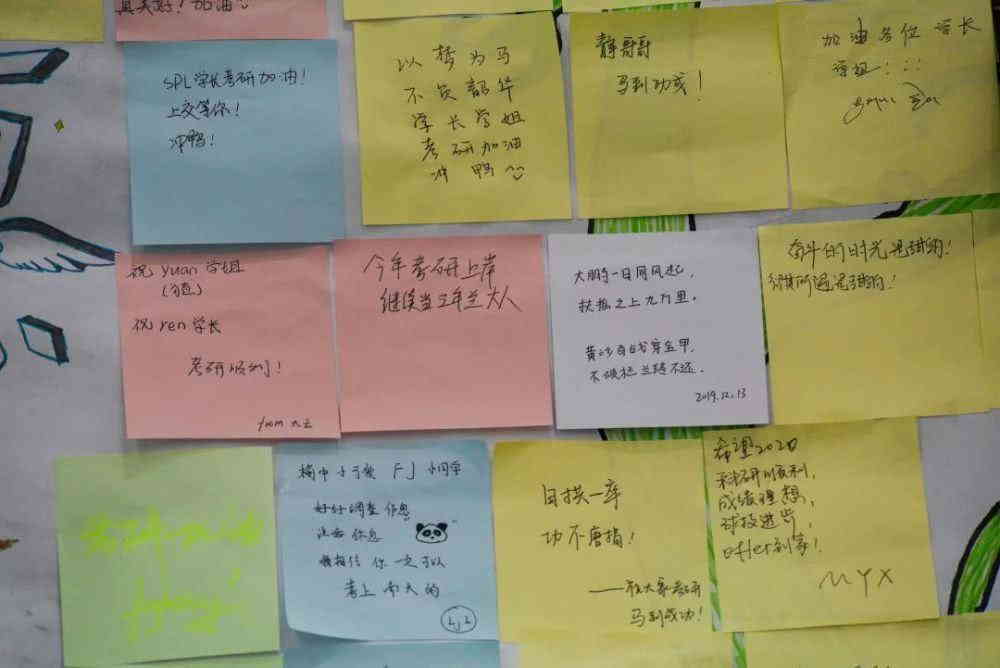 真美好！加油
SPL学长考研加油！
上交等你！
冲鸭！
以梦为马
不负韶华
学长学姐
考研加油
冲鸭
静哥哥
马到功成！
加油各位学长
学姐：：：
祝 yuan 学姐
祝 ren 学长
考研顺利！
from 大云
今年考研上岸
继续当三年兰大人
大鹏一日同风起，
扶摇之上九万里。
黄沙百战穿金甲，
不破楼兰终不还。
2019.12.13
奋斗的时光是甜的！
所遇是甜的！
榆中 FJ 小同学
好好调整作息
注意作息
我相信你一定可以
考上南大的
LJL
日拱一卒
功不唐捐！
——祝大家考研
马到成功！
希望2020
科研顺利，
成绩理想，
球技进步，
offer到家！
MYX